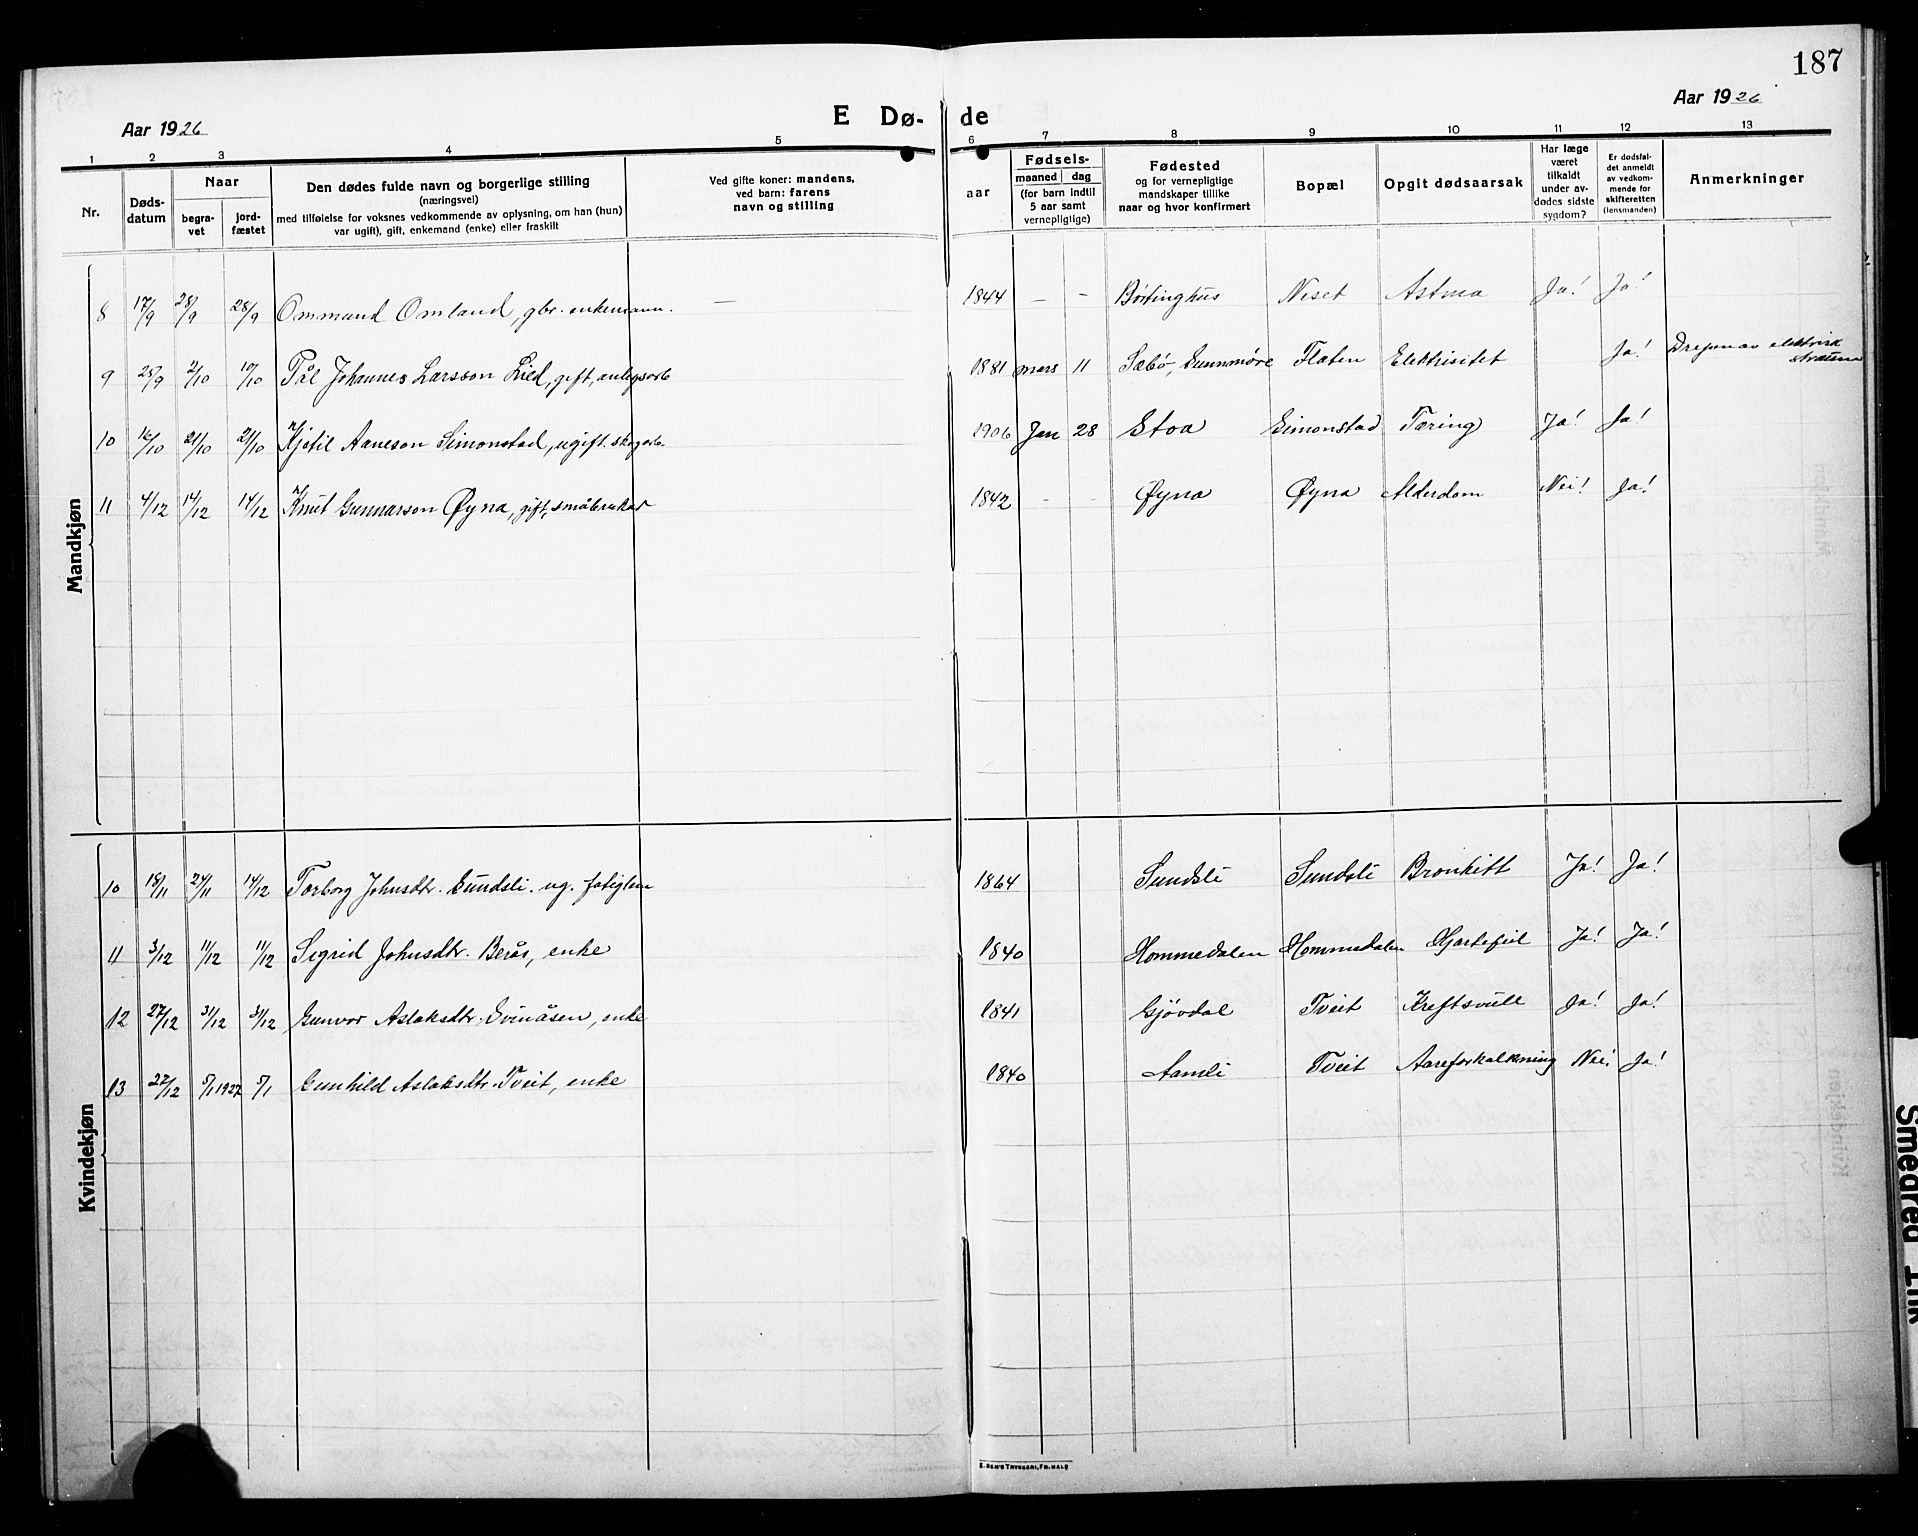 187
Aar 1926
E Dø- de
Aar 1926
1 2 3 4 5 6 7 8 9 10 11 12 13
Nr.
Døds-
datum
Naar
begra-
vet
jord-
fæstet
Den dødes fulde navn og borgerlige stilling
(næringsvei)
med tilføielse for voksnes vedkommende av oplysning, om han (hun)
var ugift), gift, enkemand (enke) eller fraskilt
Ved gifte koner: mandens,
ved barn: farens
navn og stilling
aar
Fødsels-
maaned dag
(for barn indtil
5 aar samt
vernepligtige)
Fødested
og for vernepligtige
mandskaper tillike
naar og hvor konfirmert
Bopæl
Opgit dødsaarsak
Har læge
været
tilkaldt
under av-
dødes sidste
sygdom?
Er dødsfal-
det anmeldt
av vedkom-
mende for
skifteretten
(lensmanden)
Anmerkninger
Mandkjøn
8 17/9 28/9 28/9 Ommund Omland, gbr. enkemann. — 1844 – – Børtinghus Neset Astma Ja! Ja!
9 25/9 2/10 10/10 Pål Johannes Larsson Lied, gift, anlegsarb 1881 mars 11 Sæbø, Sunnmøre Flaten Elektrisitet Ja! Drepen av elektrisk
straum
10 16/10 21/10 21/10 Kjetil Aaneson Simonstad, ugift. skogarb. 1906 Jan 28 Stoa Simonstad Tæring Ja! Ja!
11 4/12 14/12 14/12 Knut Gunnarson Øyna, gift, småbrukar 1842 - - Øyna Øyna Alderdom Nei! Ja!
Kvindekjøn
10 18/11 24/11 14/12 Torborg Johnsdtr. Sundsli. ug. fatiglem 1864 Sundsli Sundsli Bronkitt Ja! Ja!
11 3/12 11/12 11/12 Sigrid Johnsdtr. Berås, enke 1840 Hommedalen Hommedalen Hjartefeil Ja! Ja!
12 27/12 31/12 31/12 Gunvor Aslaksdtr. Svinåsen, enke 1841 Gjøvdal Tveit Kreftsvull Ja! Ja!
13 27/12 5/1 1927 5/1 Gunhild Aslaksdtr. Tveit, enke 1840 Aamli Tveit Aareforkalkning Nei! Ja!
E. SEM'S TRYKKERI, FR.HALD
Smedred Ink